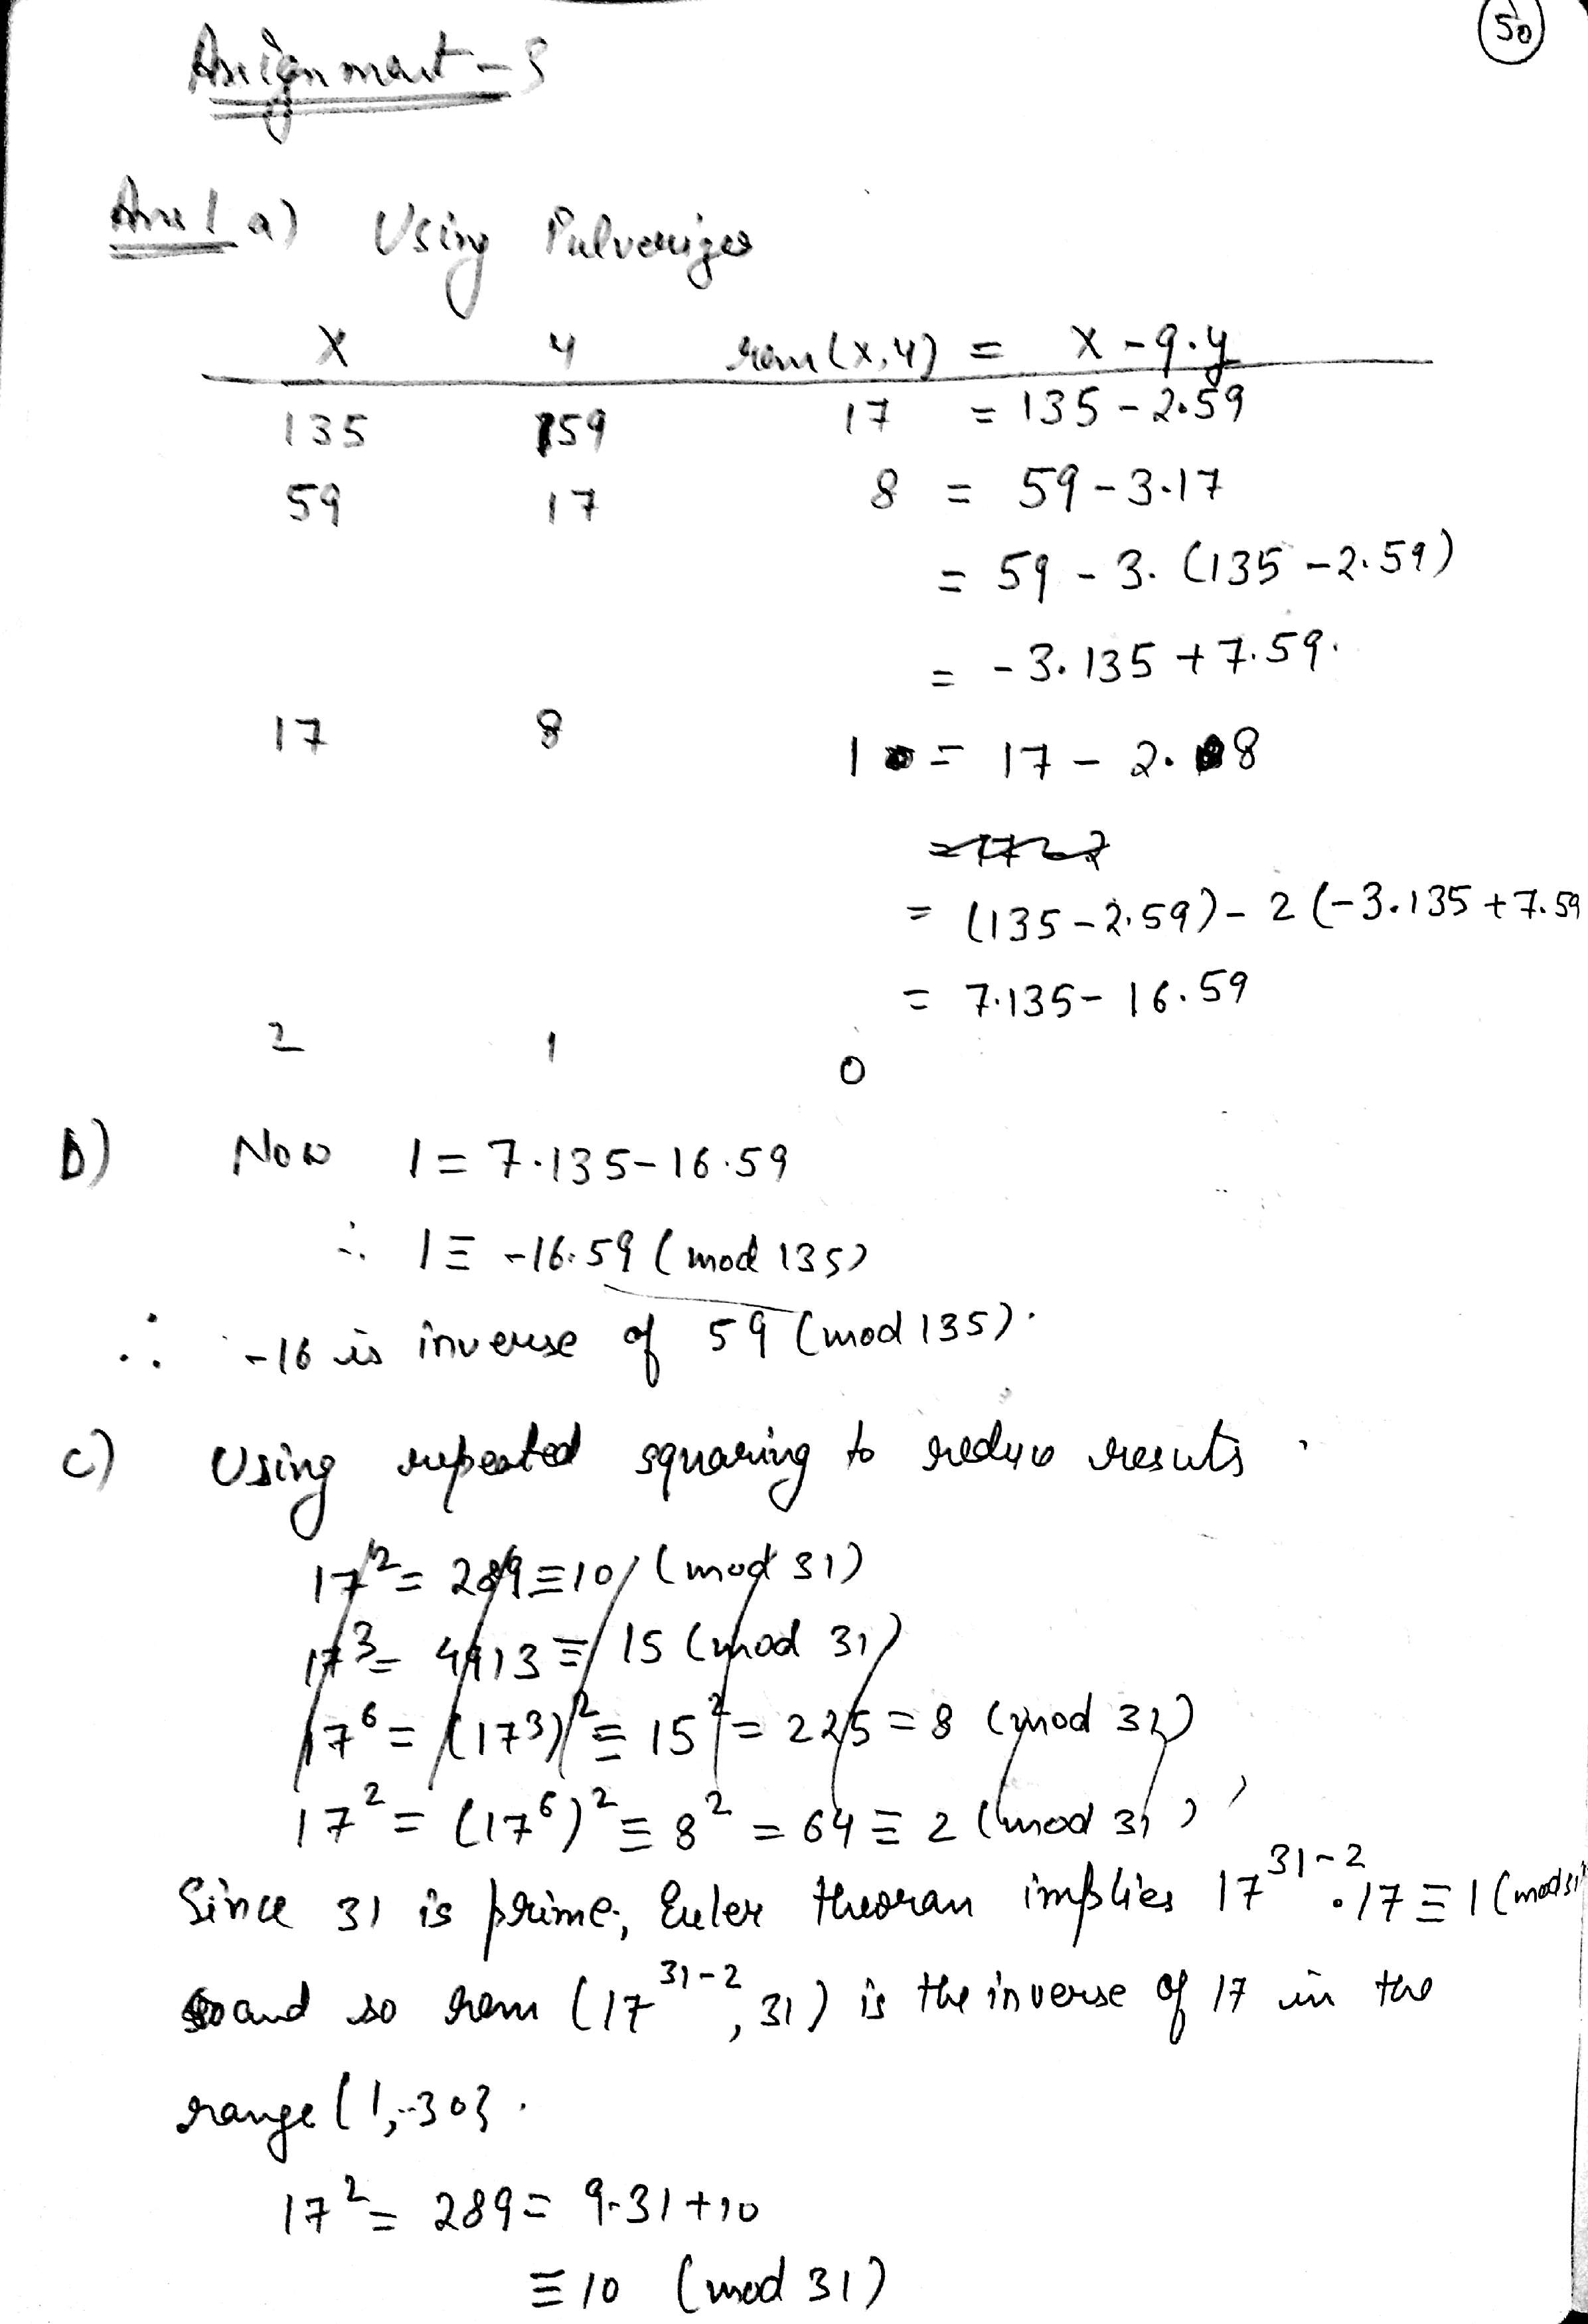 50
Assignment-3
Ans 1 a) Using Pulverizer
x y rem(x,y) = x-q.y
135 59 17 = 135-2.59
59 17 8 = 59-3.17
= 59-3.(135-2.59)
= -3.135+7.59.
17 8 1 = 17-2.8
= (135-2.59)-2(-3.135+7.59
= 7.135-16.59
2 1 0
b) Now 1=7.135-16.59
∴ 1≡-16.59 (mod 135)
∴ -16 is inverse of 59 (mod 135).
c) Using repeated squaring to reduce resuts
17¹²= 289≡10 (mod 31)
17³= 4913≡15 (mod 31)
17⁶= (17³)²≡15²=225=8 (mod 31)
17²= (17⁶)²≡8²=64≡2 (mod 31)
Since 31 is prime, Euler theoran implies 17³¹⁻².17≡1 (mod31
and so rem (17³¹⁻², 31) is the inverse of 17 in the
range {1,..30}.
17²= 289= 9.31+10
≡10 (mod 31)